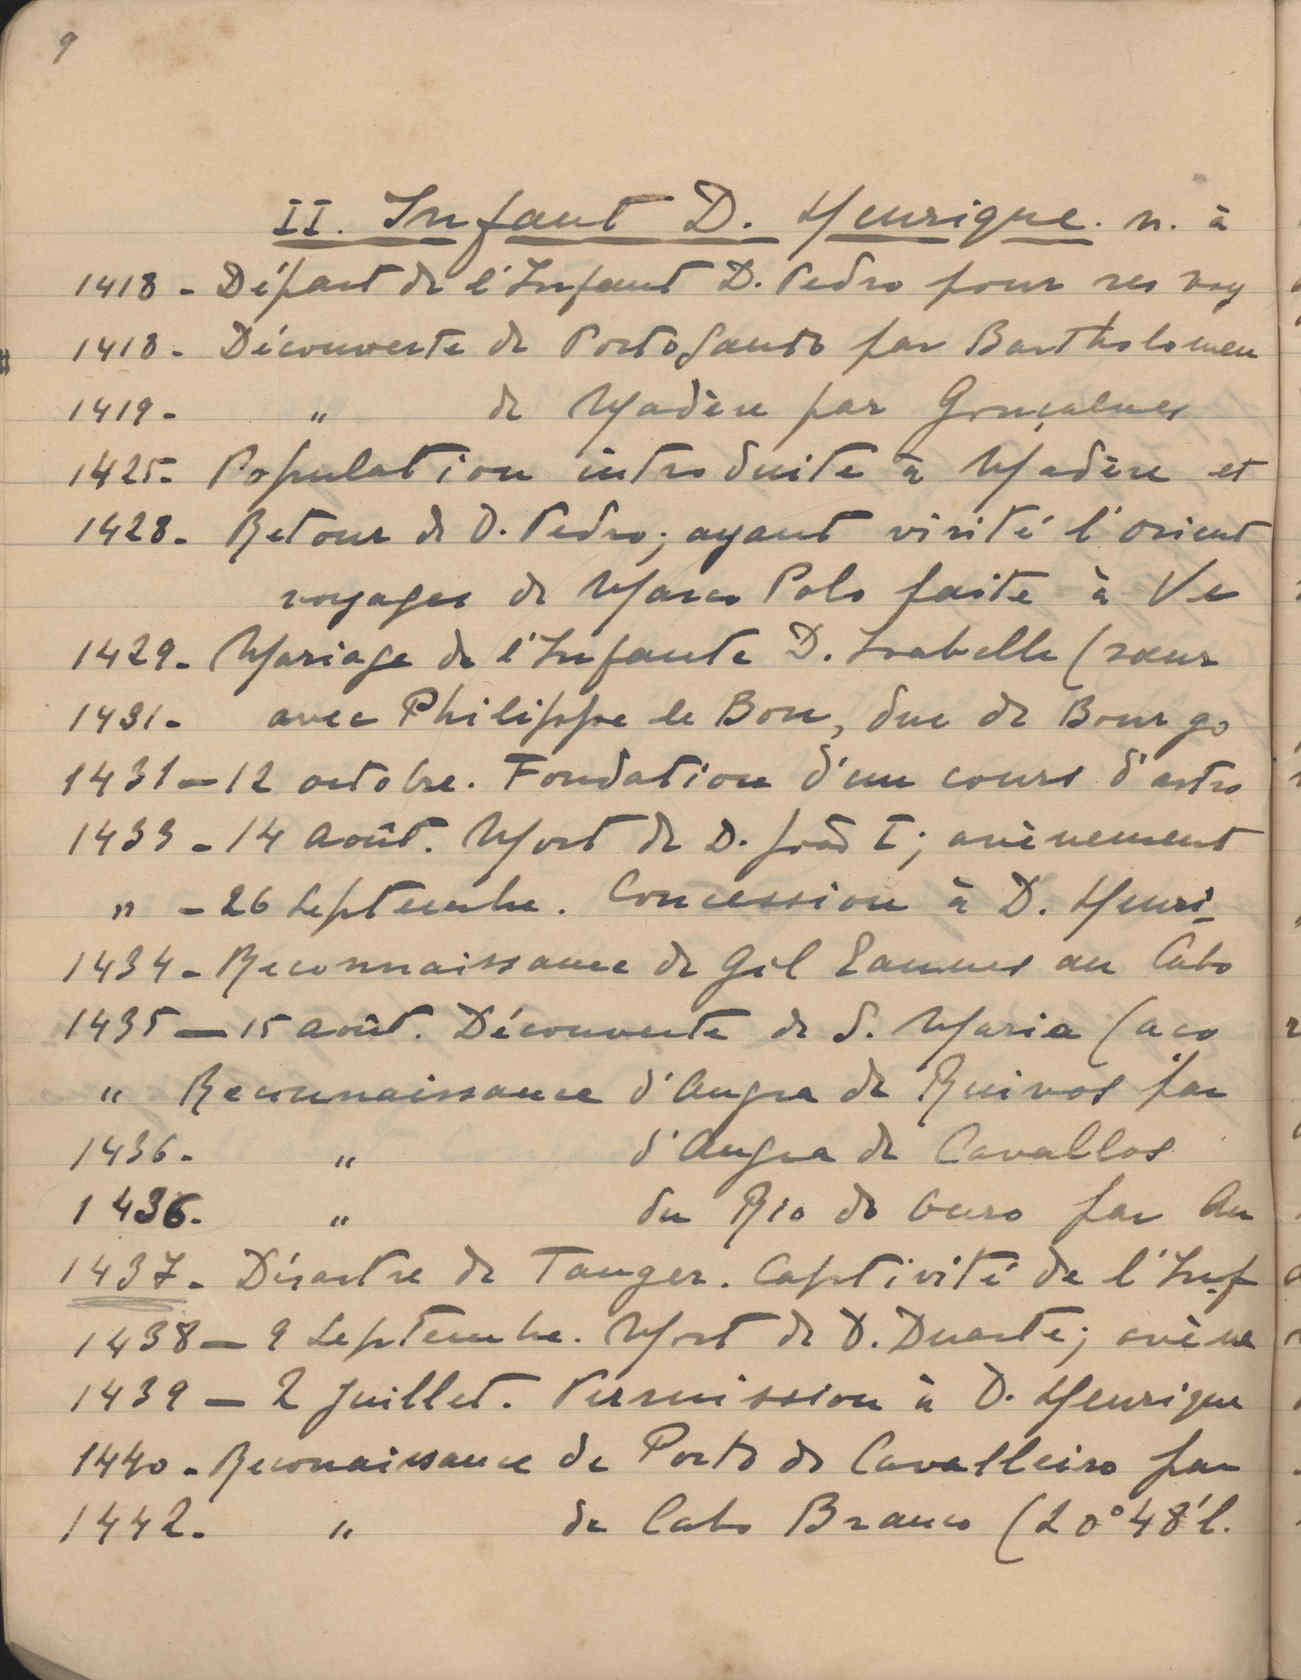 9
II. Infant D. Henrique. n. à
1418 - Départ de l'Infant D. Pedro pour ses voy
1418 - Découverte de Porto Santo par Bartholomeu
1419 - " de Madère par Gonçalves
1425 - Population introduite à Madère et
1428 - Retour de D. Pedro; ayant visité l'orient
voyages de Marco Polo faite à Ve
1429 - Mariage de l'Infante D. Isabelle (sœur
1431 - avec Philippe le Bon, duc de Bourgo
1431 - 12 octobre. Fondation d'un cours d'astro
1433 - 14 août. Mort de D. João I; avènement
" - 26 Septembre. Concession à D. Henri-
1434 - Reconnaissance de Gil Eannes au Cabo
1435 - 15 août. Découverte de S. Maria (aço
" Reconnaissance d'Angra de Ruivos par
1436 - " d'Angra de Cavallos
1436. " du Rio do Ouro par
1437 - Désastre de Tanger. Captivité de l'Inf
1438 - 9 Septembre. Mort de D. Duarte; avène
1439 - 2 Juillet. Permission à D. Henrique
1440 - Reconaissance de Porto do Cavalleiro par
1442. " de Cabo Branco (20°48'l.